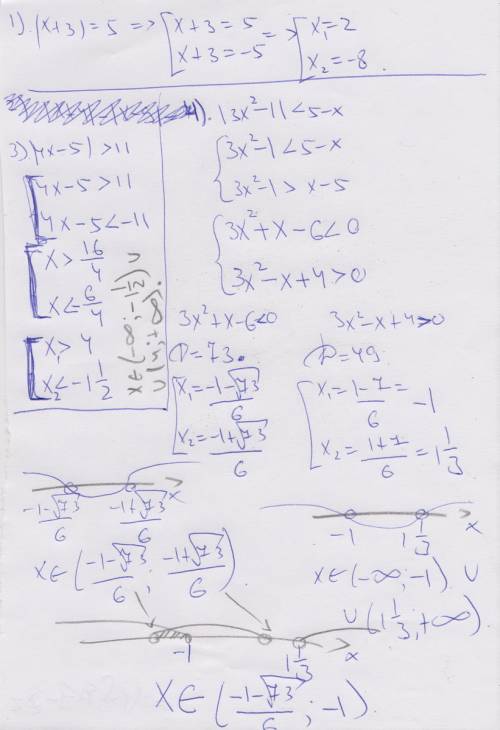 1). |x+3|=5 => [ x+3=5 ; x+3=-5 => [ x₁=2 ; x₂=-8.
3) |4x-5|>11
[ 4x-5>11
4x-5<-11
[ x>16/4
x<6/4
[ x₁>4
x₂<-1 1/2
x∈(-∞;-1 1/2)∪
∪(4;+∞).
4). |3x²-1|<5-x
{ 3x²-1<5-x
3x²-1>x-5
{ 3x²+x-6<0
3x²-x+4>0
3x²+x-6<0
D=73.
[ x₁=(-1-√73)/6
x₂=(-1+√73)/6
(-1-√73)/6 (-1+√73)/6 x
x∈((-1-√73)/6; (-1+√73)/6).
3x²-x+4>0
D=49
[ x₁=(1-7)/6=-1
x₂=(1+7)/6=1 1/3
-1 1 1/3 x
x∈(-∞;-1)∪
∪(1 1/3;+∞)
-1 1 1/3 x
x∈((-1-√73)/6; -1).